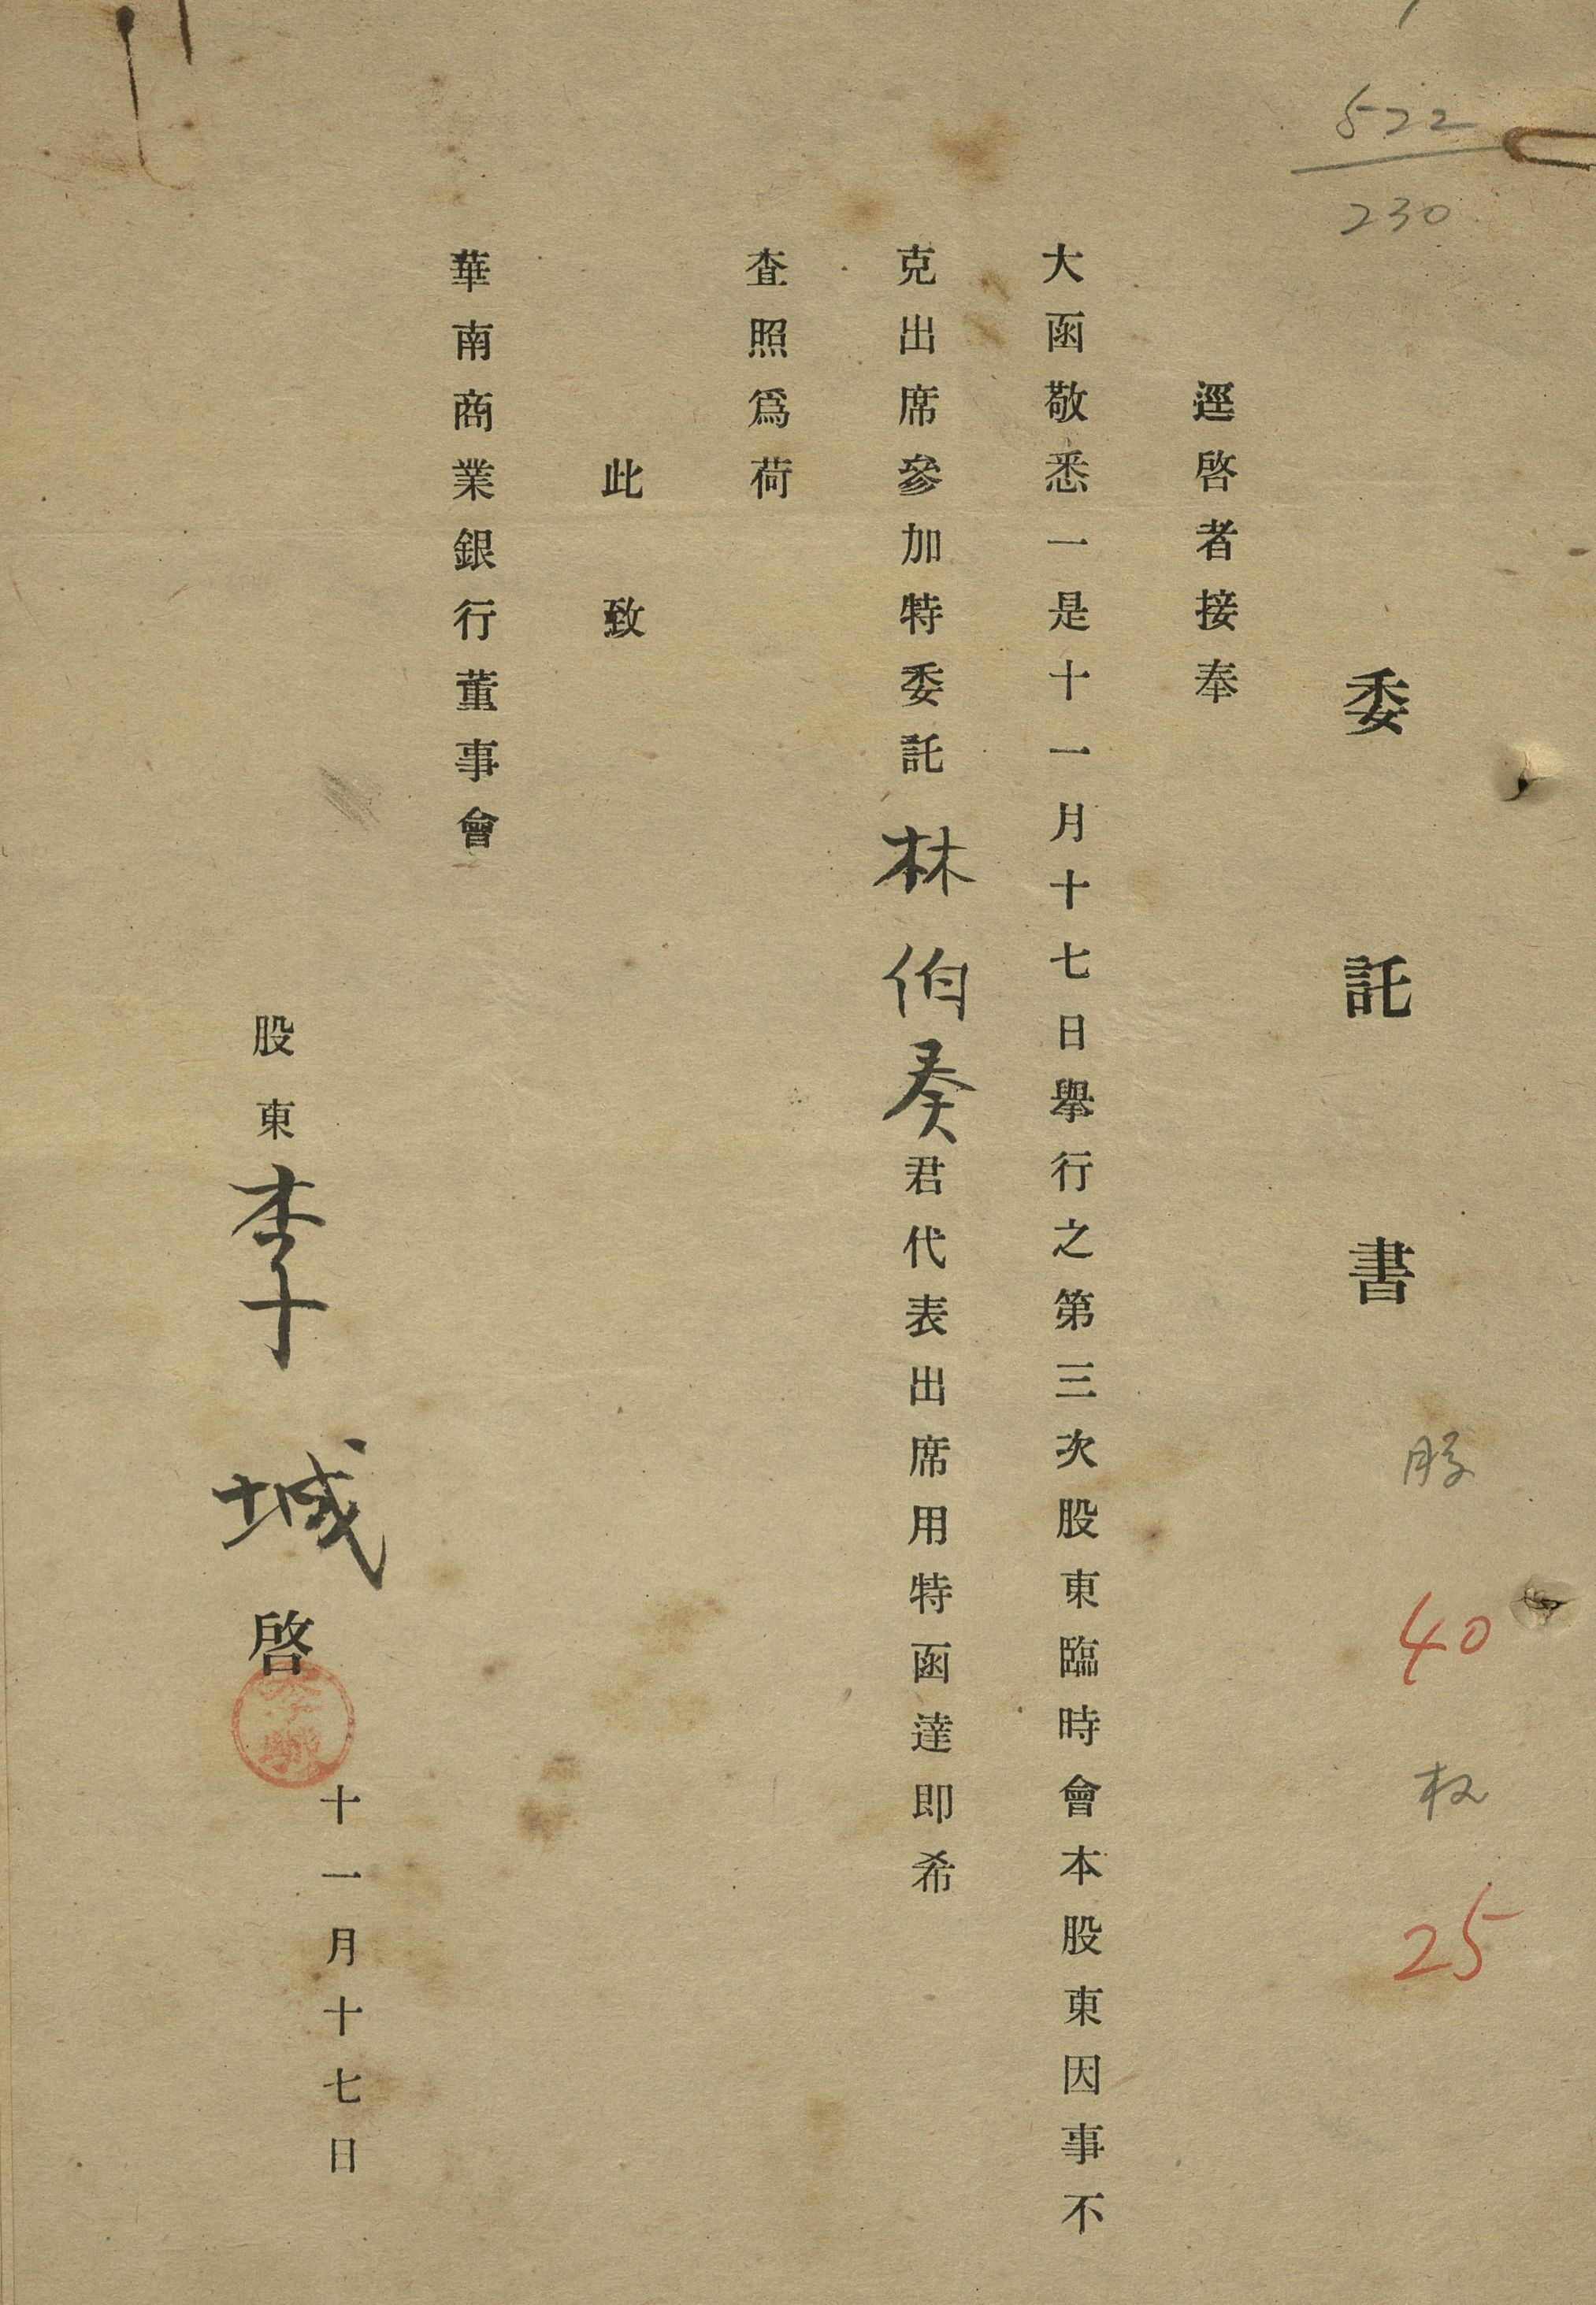 522
230
委託書
股 40 权 25
逕啓者接奉
大函敬悉一是十一月十七日舉行之第三次股東臨時會本股東因事不
克出席參加特委託林伯奏君代表出席用特函達即希
查照爲荷
此致
華南商業銀行董事會
股東李城啓
十一月十七日